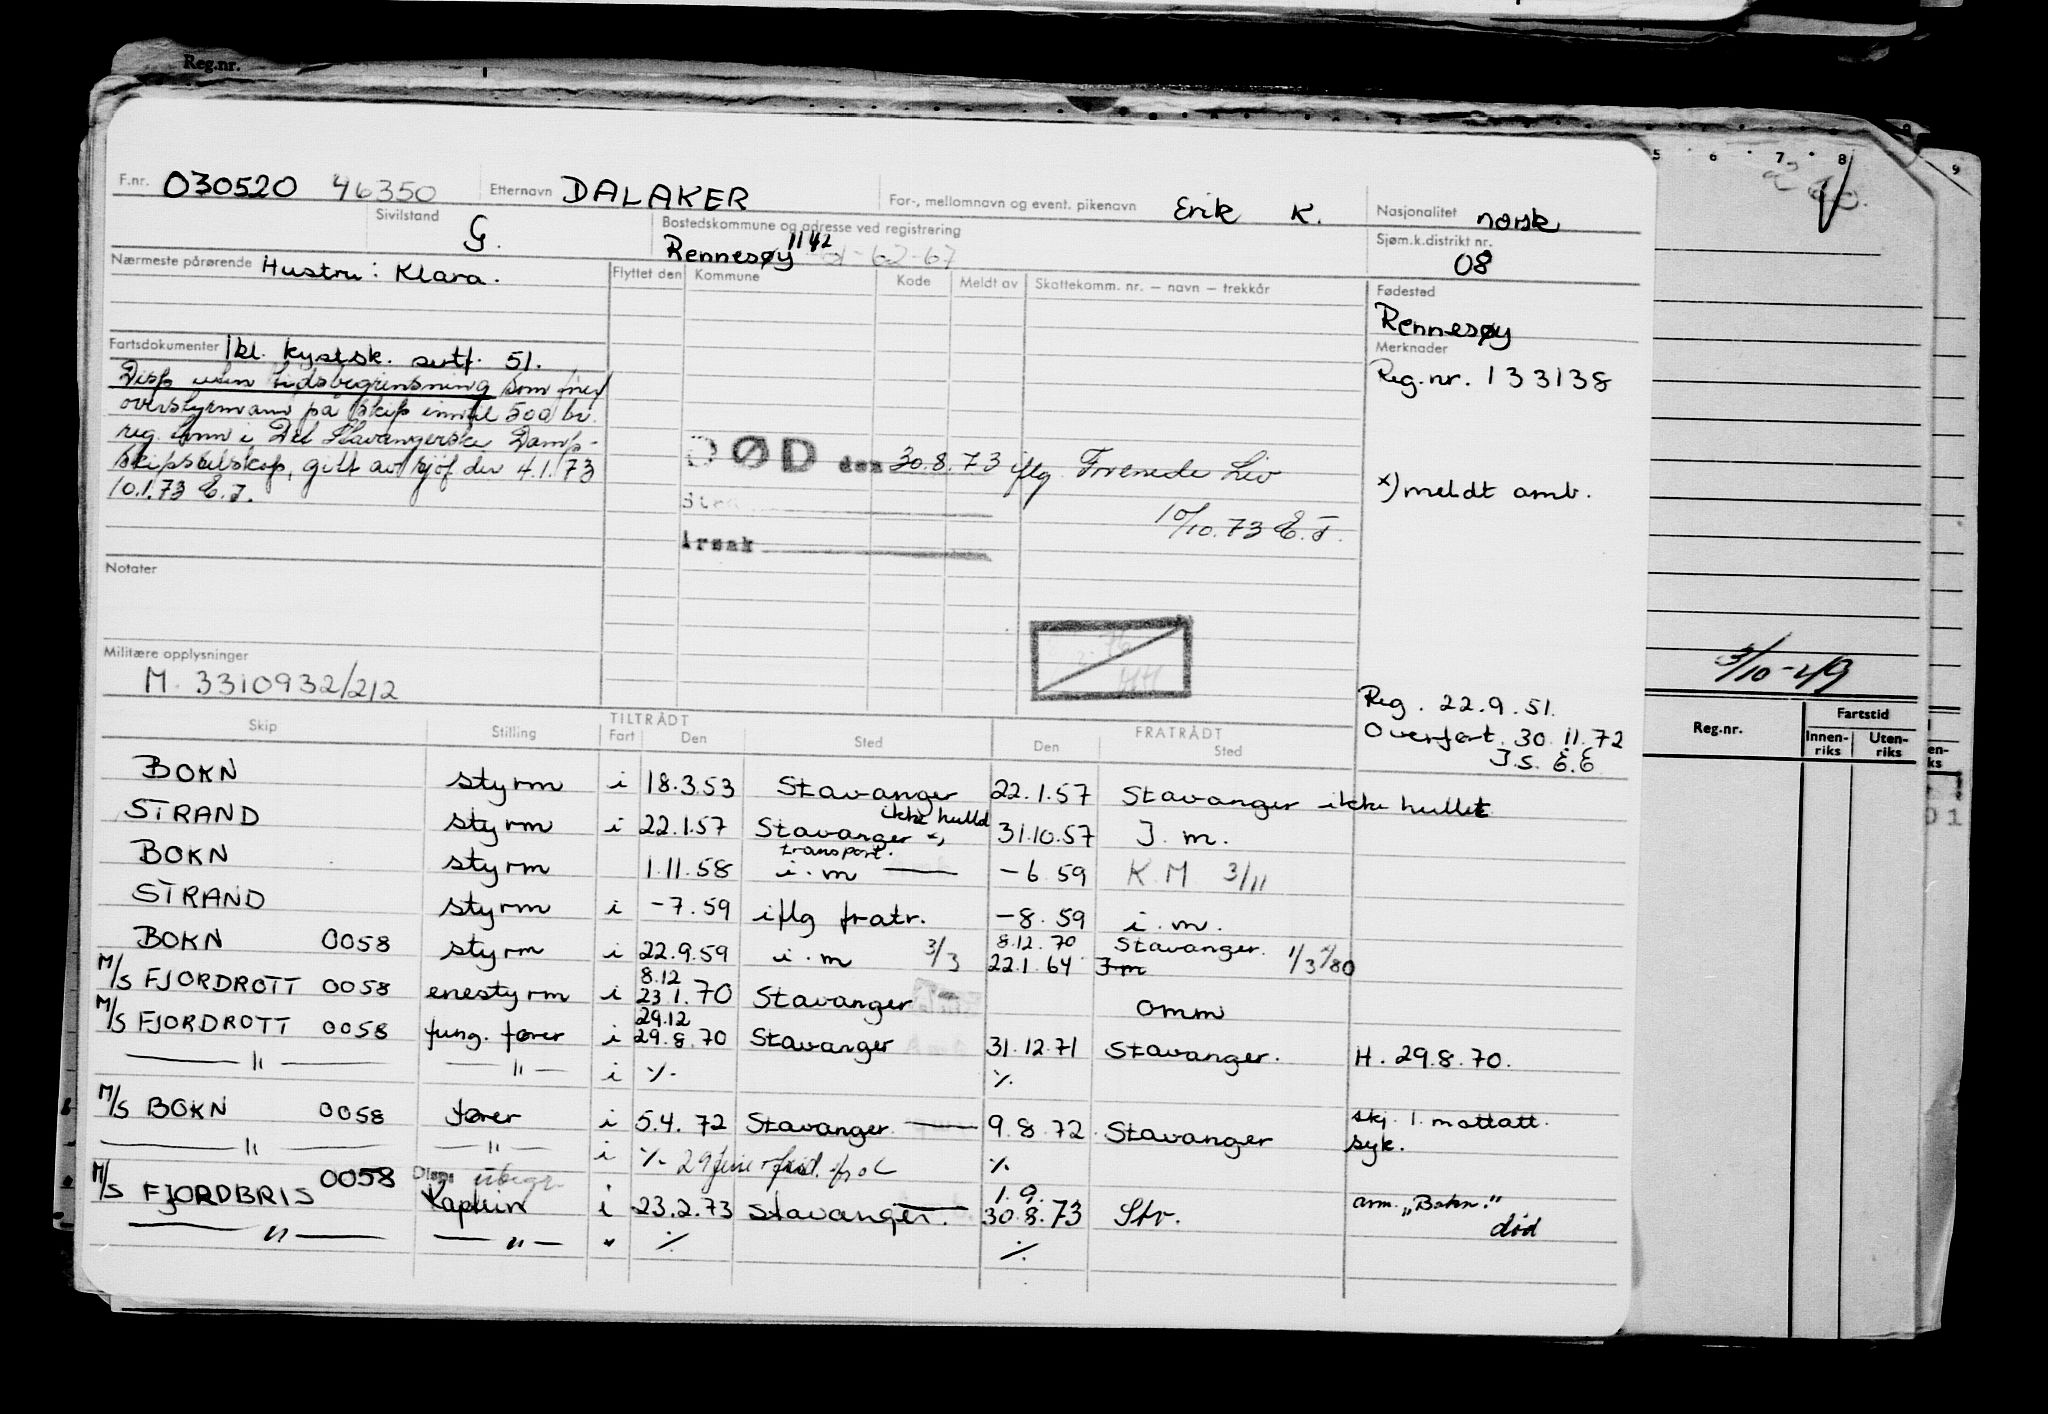 Reg.nr.
F.nr. 030520 46350 Etternavn DALAKER For-, mellomnavn og event. pikenavn Erik K. Nasjonalitet norsk
Sivilstand G. Bostedskommune og adresse ved registrering Rennesøy 1142 Sjøm.k.distrikt nr. 08
Nærmeste pårørende Hustru: Klara. Flyttet den Kommune Kode Meldt av Skattekomm. nr. — navn — trekkår Fødested
Rennesøy
Fartsdokumenter 1kl. kystsk. sertf. 51. Merknader
Disp uten tidsbegrensning som
Reg.nr. 133138
overstyrmann på skip inntil 500 br.
reg. tonn i Det Stavangerske Damp-
skipsselskap, gitt av sjøf. den 4.1.73
10.1.73 E.J.
DØD den 30.8.73 iflg. Forenede Liv
*) meldt amb.
10/10.73 E.J.
årsak
Notater
Militære opplysninger
M. 3310932/212
Reg. 22.9.51.
Overført. 30.11.72
J.S. E.E
Skip Stilling TILTRÅDT FRATRÅDT
Fart Den Sted Den Sted
BOKN styrm i 18.3.53 Stavanger 22.1.57 Stavanger ikke hullet
STRAND styrm i 22.1.57 Stavanger *) ikke hulld 31.10.57 J. m.
BOKN styrm 1.11.58 transport. i.m — -6.59 K.M 3/11
STRAND styrm i -7.59 iflg fratr. -8.59 i.m.
BOKN 0058 styrm i 22.9.59 i.m 3/3 8.12.70 22.1.64 Stavanger. Jm 1/3
M/S FJORDROTT 0058 enestyrm i 8.12 23.1.70 Stavanger omm
M/S FJORDROTT 0058 fung. fører i 29.12 29.8.70 Stavanger 31.12.71 Stavanger. H. 29.8.70.
— " — — " — i ./. ./.
M/S BOKN 0058 fører i 5.4.72 Stavanger — 9.8.72 Stavanger skj. 1. mottatt. syk.
— " — — " — i ./. 29 ./.
M/S FJORDBRIS 0058 Disp. ubegr. Kaptein i 23.2.73 Stavanger. 1.9. 30.8.73 Stv. anm. „Bokn." død
— " — — " — " ./. ./.
5 6 7 8
9
3/10-49
Reg.nr. Fartstid
Innen-riks Uten-riks